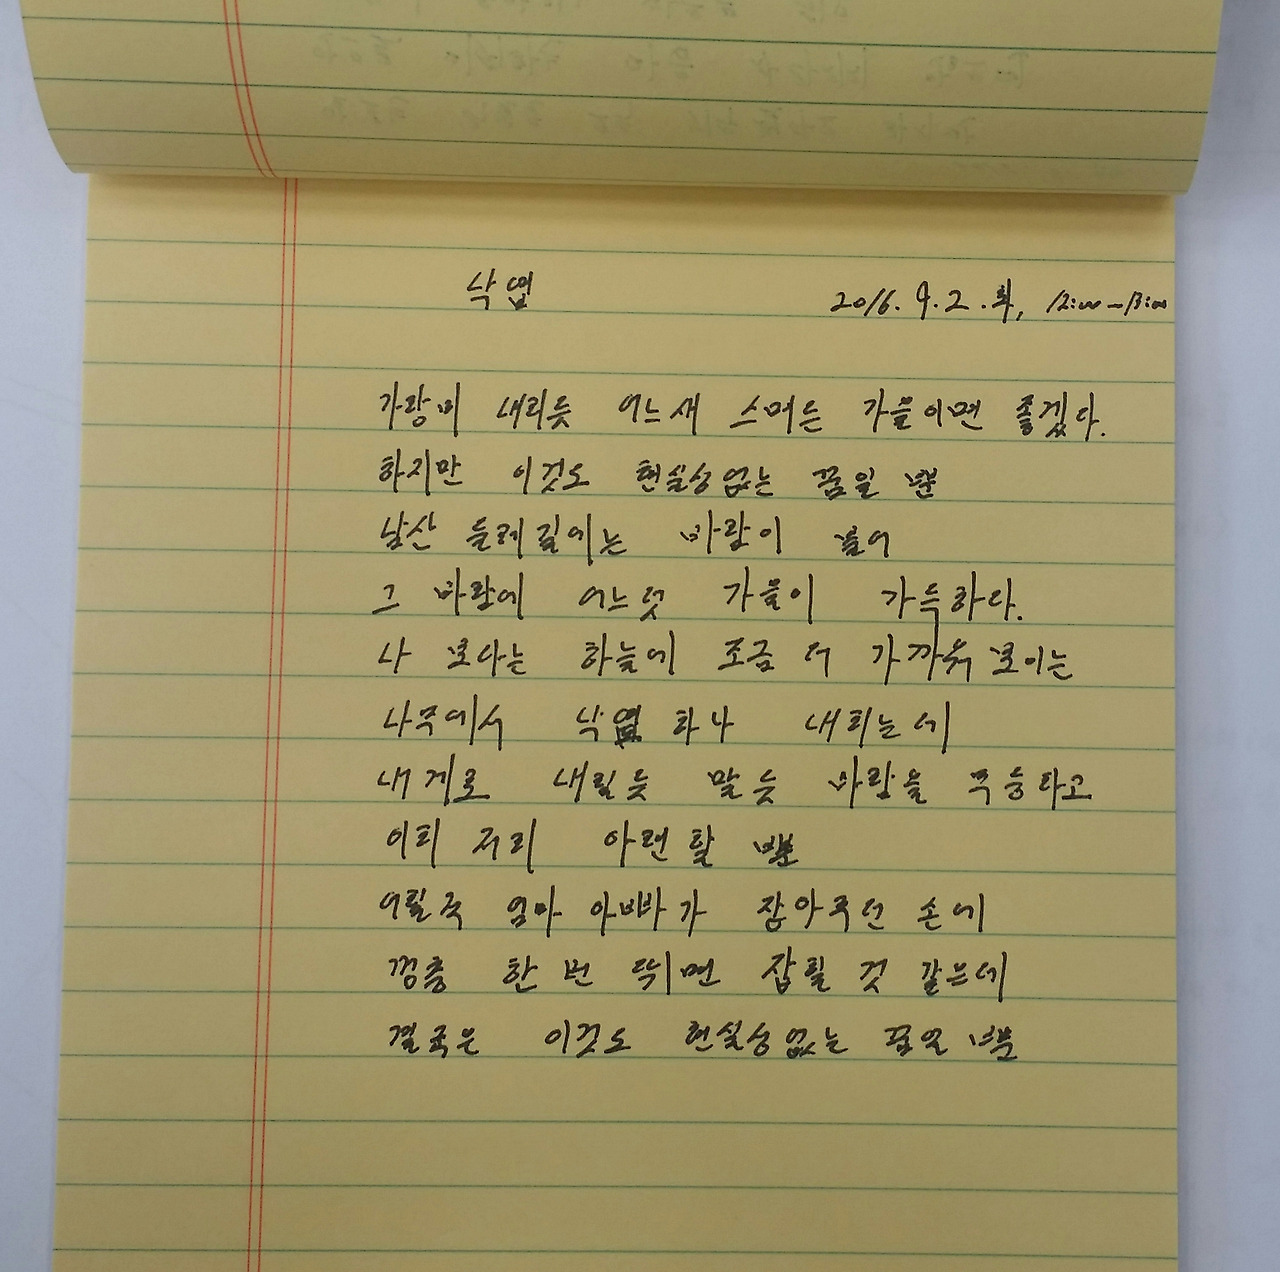 낙엽
2016. 9. 2. 화, 12:00-13:00
가랑비 내리듯 어느새 스며든 가을이면 좋겠다.
하지만 이것도 현실성없는 꿈일 뿐
남산 둘레길에는 바람이 불어
그 바람에 어느덧 가을이 가득하다.
나 보다는 하늘에 조금 더 가까워 보이는
나무에서 낙엽 하나 내리는데
내게로 내릴듯 말듯 바람을 주릉타고
이리 저리 아련할 뿐
어릴적 엄마 아빠가 잡아주던 손에
껑충 한 번 뛰면 잡힐 것 같은데
결국은 이것도 현실성없는 꿈일 뿐